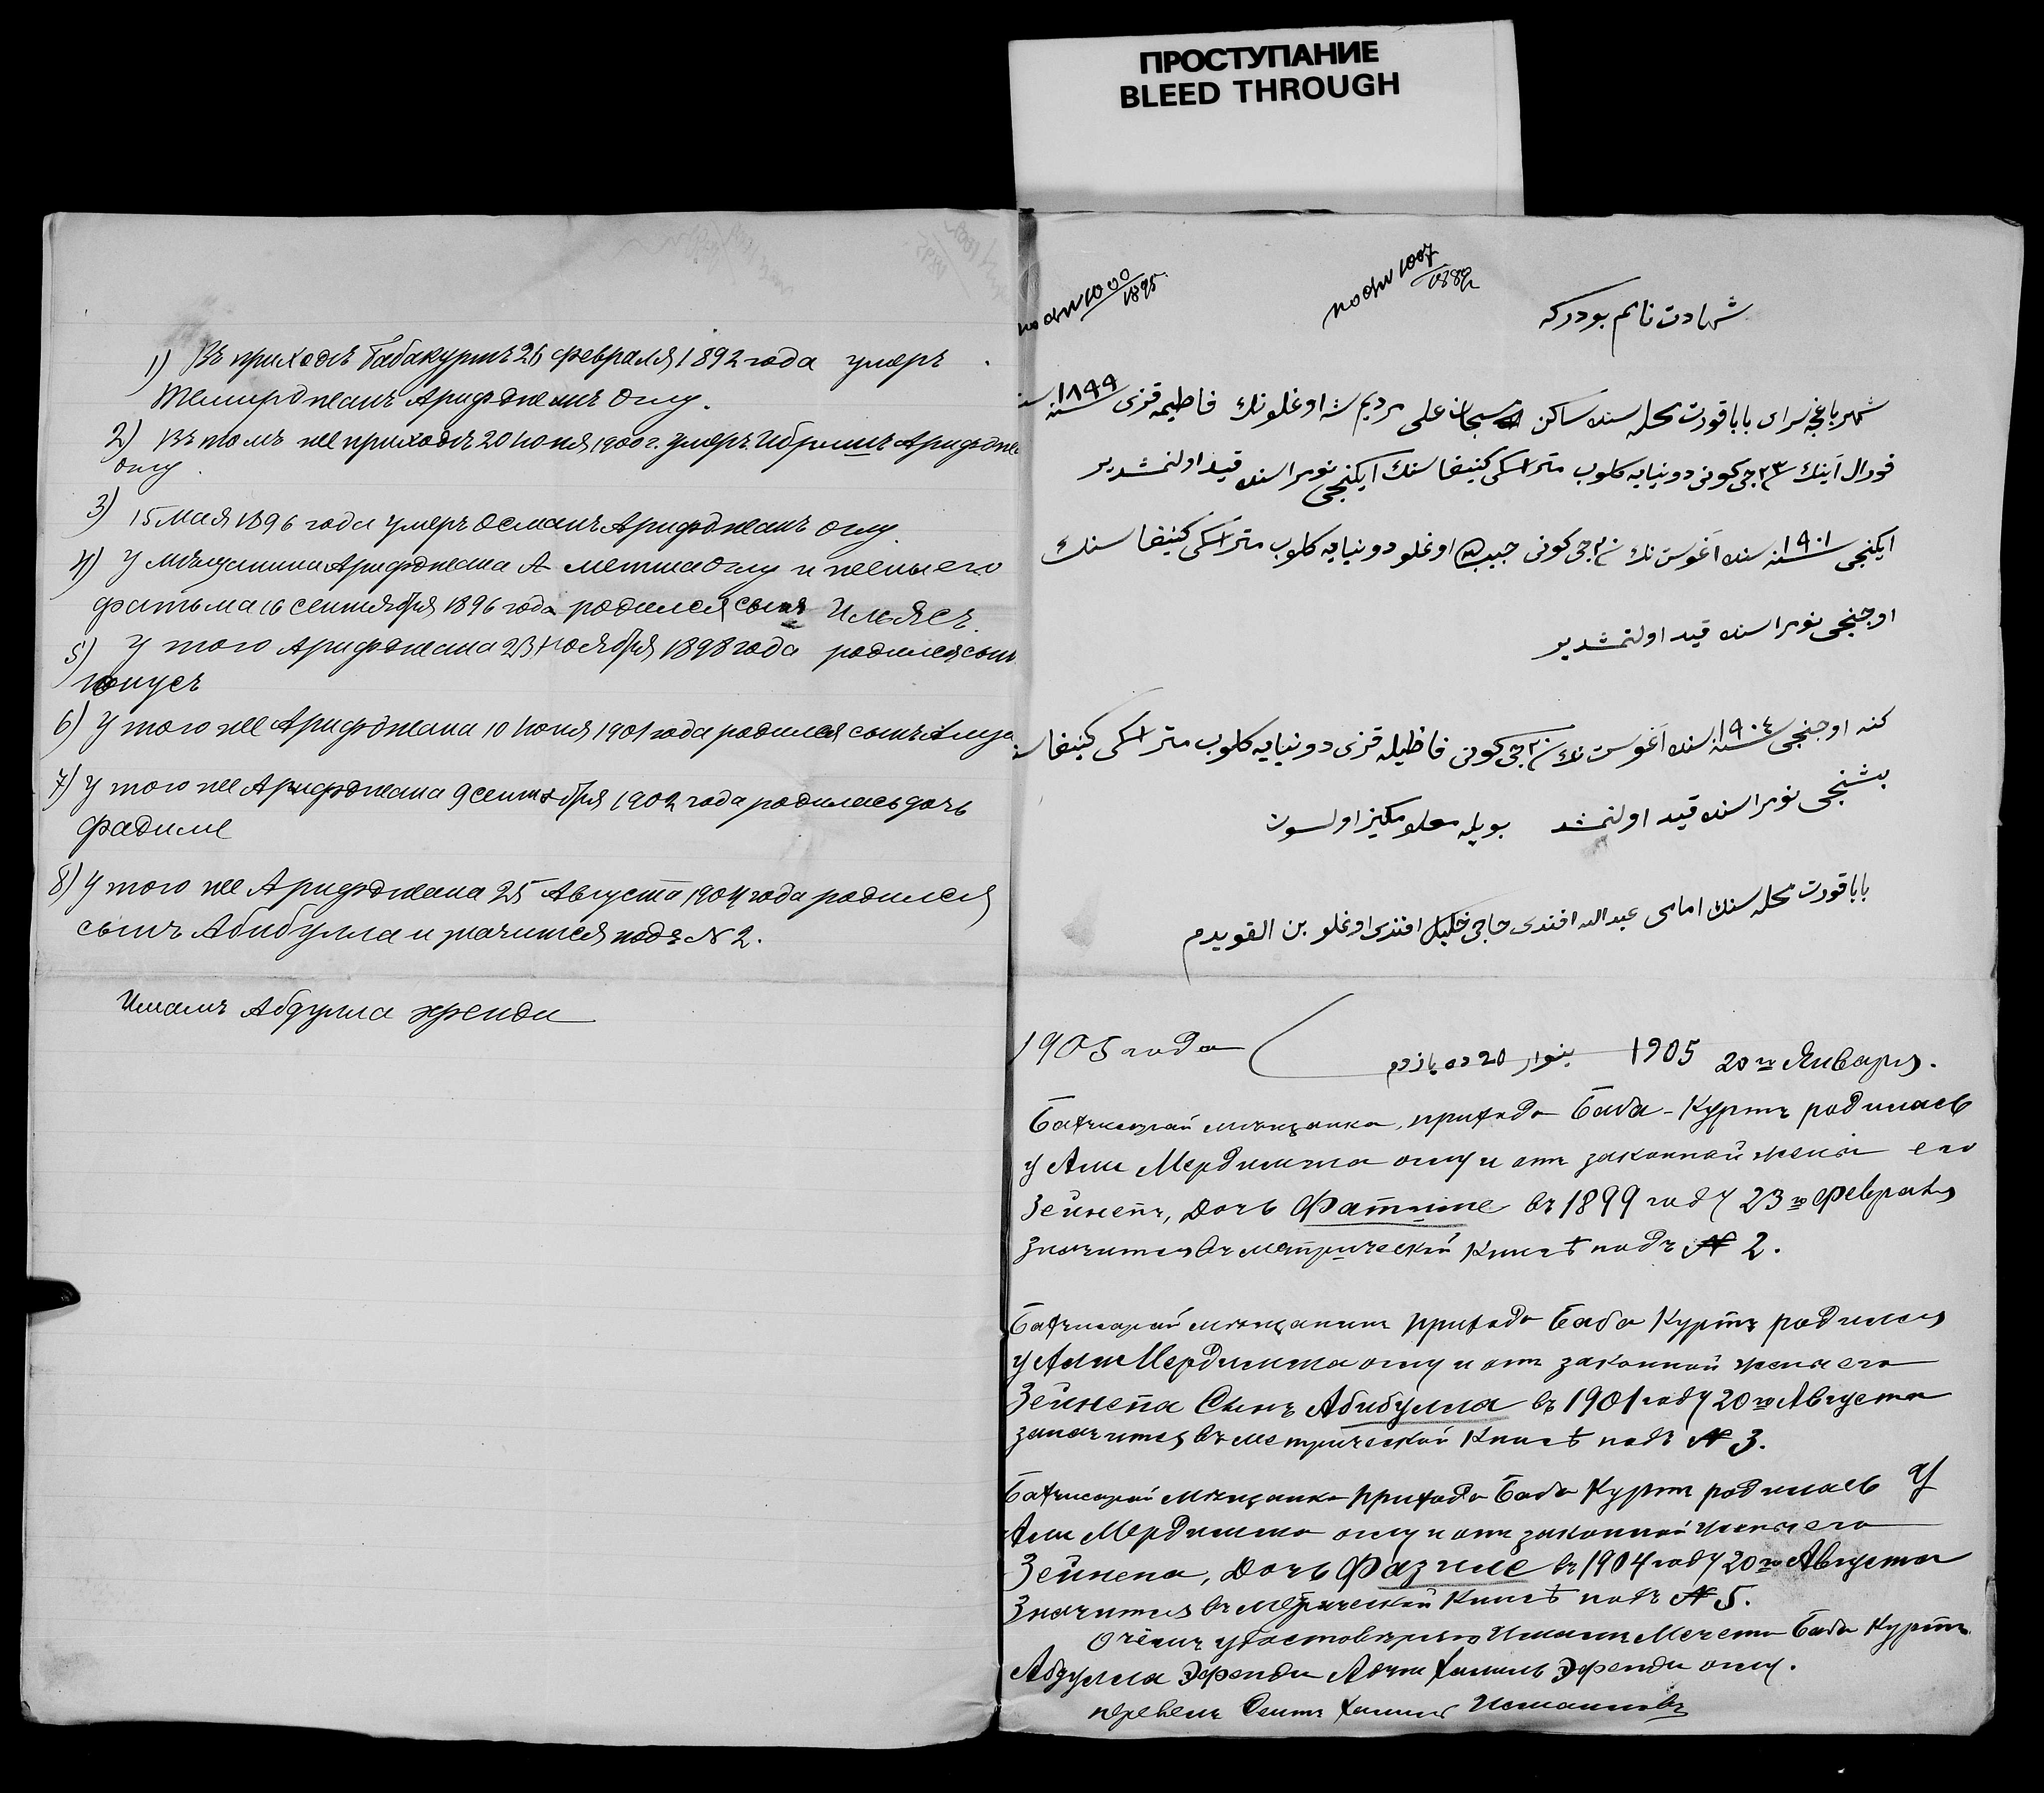 ПРОСТУПАНИЕ
BLEED THROUGH
1) Въ приходѣ Бабакуртъ 26 февраля 1892 года умеръ
Темирджанъ Арифджанъ Оглу.
2) Въ томъ же приходѣ 20 Іюня 1900 г. умеръ Ибримъ Арифдже
оглу.
3) 15 Мая 1896 года умеръ Османъ Арифджанъ оглу.
4) У мѣщанина Арифджана Аметша Оглу и жены его
Фатьма 16 сентября 1896 года родился сынъ Ильясъ.
5) У того Арифджана 23 Ноября 1898 года родился сынъ
Юнусъ
6) У того же Арифджана 10 Іюня 1901 года родился сынъ
7) У того же Арифджана 9 сентября 1902 года родилась дочь
Фадиме
8) У того же Арифджана 25 Августа 1904 года родился
сынъ Абибулла и значится подъ № 2.
Имамъ Абдулла эфенди
1000/1895
1007
شهادت نامم بودركه
شهر باغچه سراى بابا قورت محله سنده ساكن سبحان على مرديم شه اوغلونك فاطيمه قزى ١٨٩٩ سنه
فورال آينك ٢٣ جى كونى دونيايه كلوب متراسكى كنيغاسنك ايكنجى نومراسنده قيد اولنمشدير
ايكنجى ١٩٠١ سنه سنده آغوست نك ٢٠ جى كونى حبيب الله اوغلو دونيايه كلوب متراسكى كنيغاسنك
اوچنجى نومراسنده قيد اولنمشدير
كنه اوچنجى ١٩٠٤ سنه سنده آغوست نك ٢٠ جى كونى فاظيله قزى دونيايه كلوب متراسكى كنيغا
بشنجى نومراسنده قيد اولنمشد بويله معلومكيز اولسون
بابا قورت محله سنك امامى عبدالله افندى حاجى خليل افندى اوغلو بن القويدم
1905 года
ينوار 20 ده يازدم 1905 20го Января.
Бахчисарай мѣщанка, прихода Баба-Куртъ родилась
у Али Мердимша оглу и отъ законной жены его
Зейнепъ, дочь Фатиме въ 1899 году 23го Февраля
значится въ метрической Книгѣ подъ № 2.
Бахчисарай мѣщанинъ прихода Баба Куртъ родился
у Али Мердимша оглу и отъ законной жены его
Зейнепа Сынъ Абибулла въ 1901 году 20го Августа
значится въ метрической Книгѣ подъ № 3.
Бахчисарай мѣщанка прихода Баба Куртъ родилась У
Али Мердимша оглу и отъ законной жены его
Зейнепа, дочь Фазиле въ 1904 году 20го Августа
Значится въ метрической Книгѣ подъ № 5.
О чёмъ удостовѣряю Имамъ Мечети Баба Куртъ
Абдулла Эфенди Аджи Халиль Эфенди оглу.
перевелъ Сеитъ Халиль